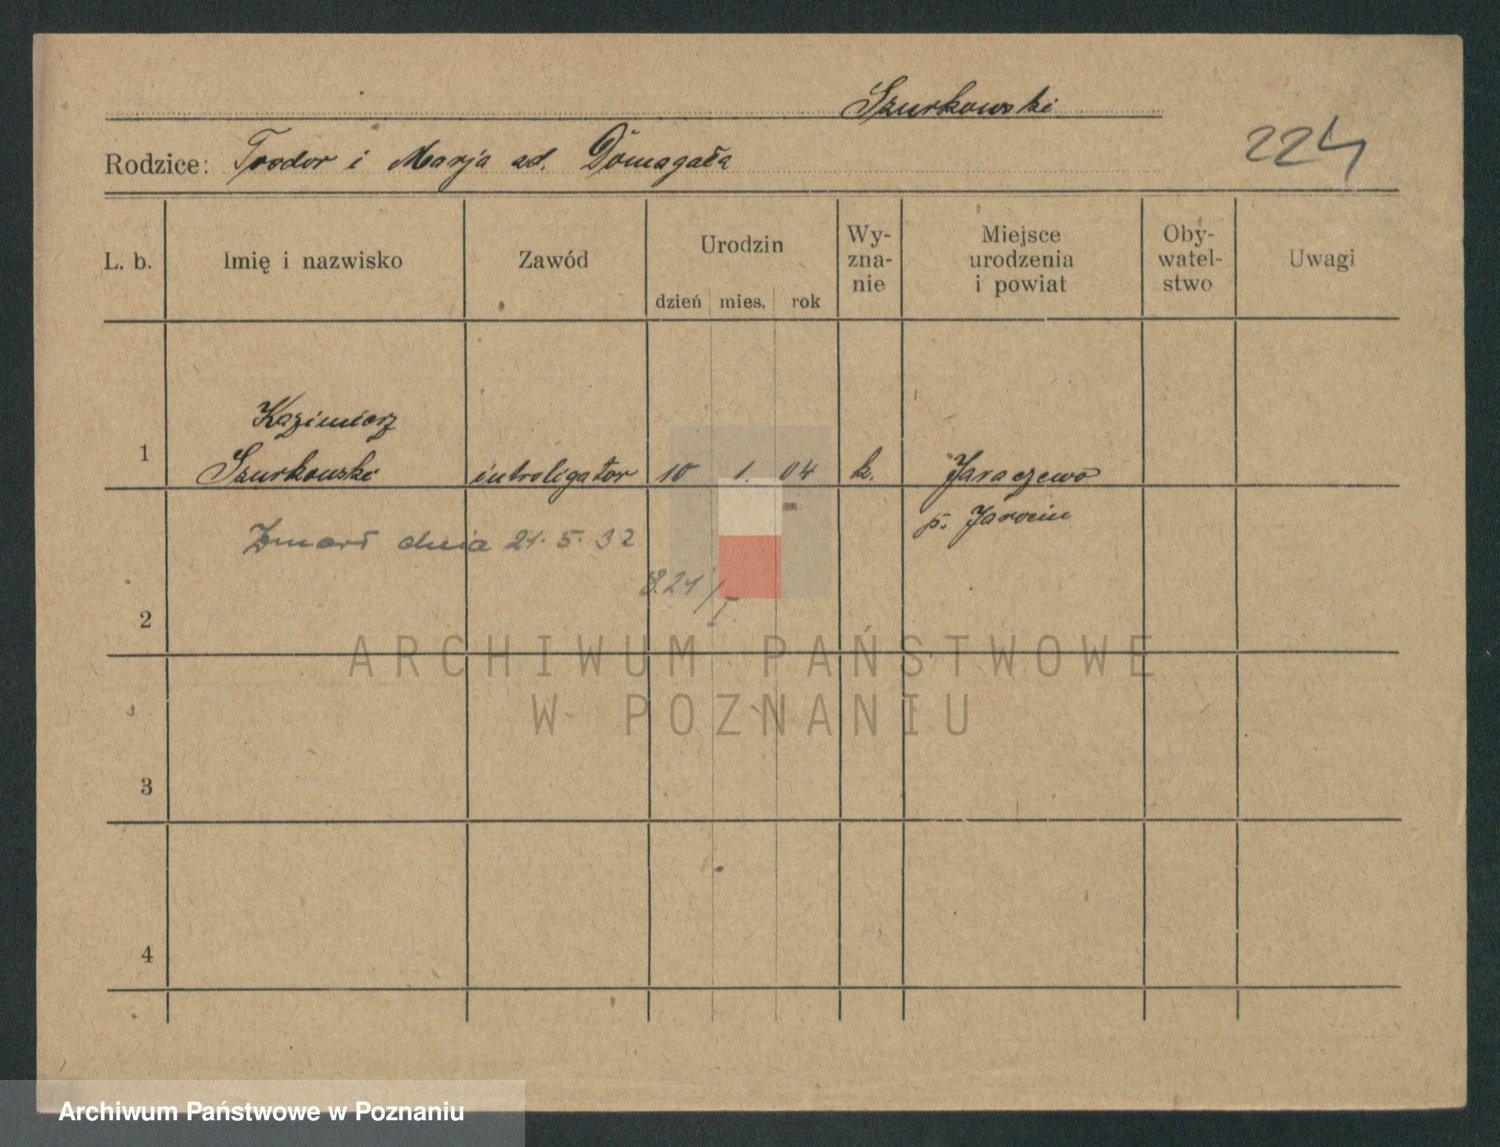 Szurkowski
224
Rodzice: Teodor i Marja zd. Domagała
L. b. Imię i nazwisko Zawód Urodzin dzień mies. rok Wy-zna-nie Miejsce urodzenia i powiat Oby-watel-stwo Uwagi
Kazimierz
1 Szurkowski introligator 10 1. 04 k. Jaraczewo
p. Jarocin
Zmarł dnia 21. 5. 32
821/I.
2
ARCHIWUM PAŃSTWOWE
W POZNANIU
3
4
Archiwum Państwowe w Poznaniu